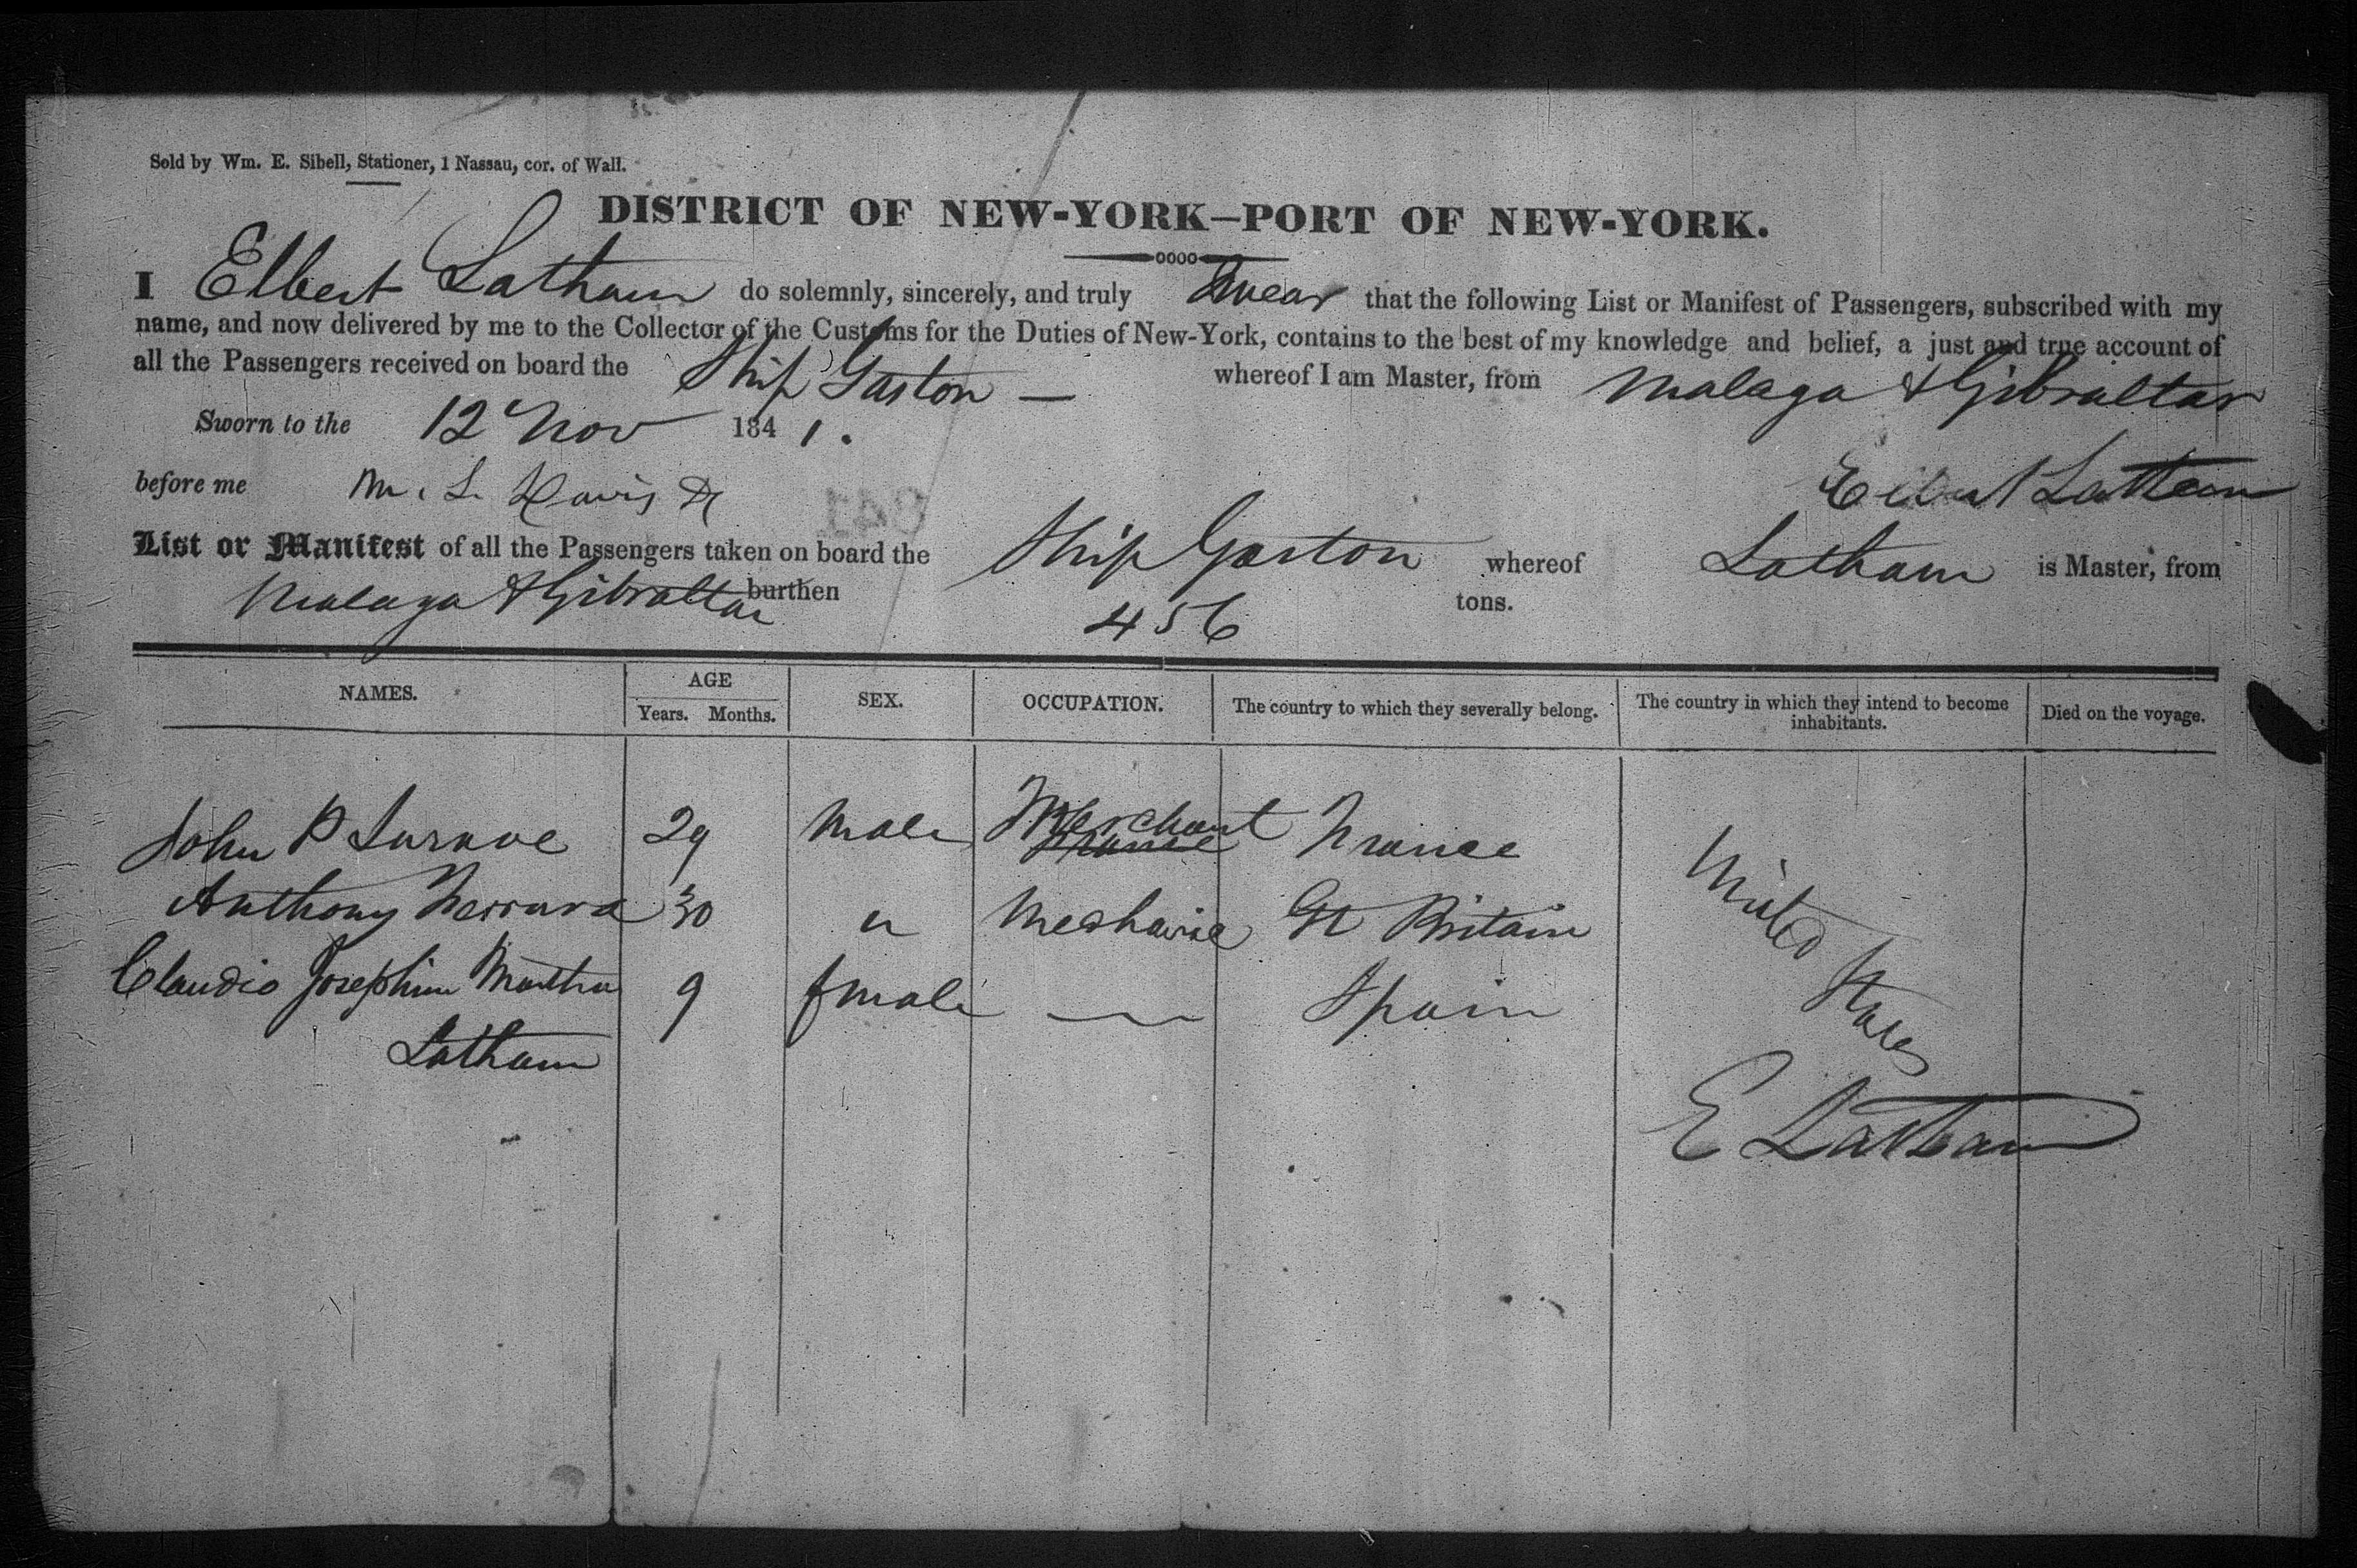 Sold by Wm. E. Sibell, Stationer, 1 Nassau, cor. of Wall.
DISTRICT OF NEW-YORK—PORT OF NEW-YORK.
I Elbert Latham do solemnly, sincerely, and truly Swear that the following List or Manifest of Passengers, subscribed with my
name, and now delivered by me to the Collector of the Customs for the Duties of New-York, contains to the best of my knowledge and belief, a just and true account of
all the Passengers received on board the Ship Gaston — whereof I am Master, from Malaga & Gibraltar
Sworn to the 12 Nov 1841.
before me M. L. Davis Elbert Latham
List or Manifest of all the Passengers taken on board the Ship Gaston whereof Latham is Master, from
Malaga & Gibraltar burthen 456 tons.
NAMES. AGE Years. Months. SEX. OCCUPATION. The country to which they severally belong. The country in which they intend to become inhabitants. Died on the voyage.
John P 29 Male Merchant France France
Anthony Ferrara 30 " Mechanic Gt Britain United
Claudio Josephine Martha 9 female — Spain States
Latham
E Latham